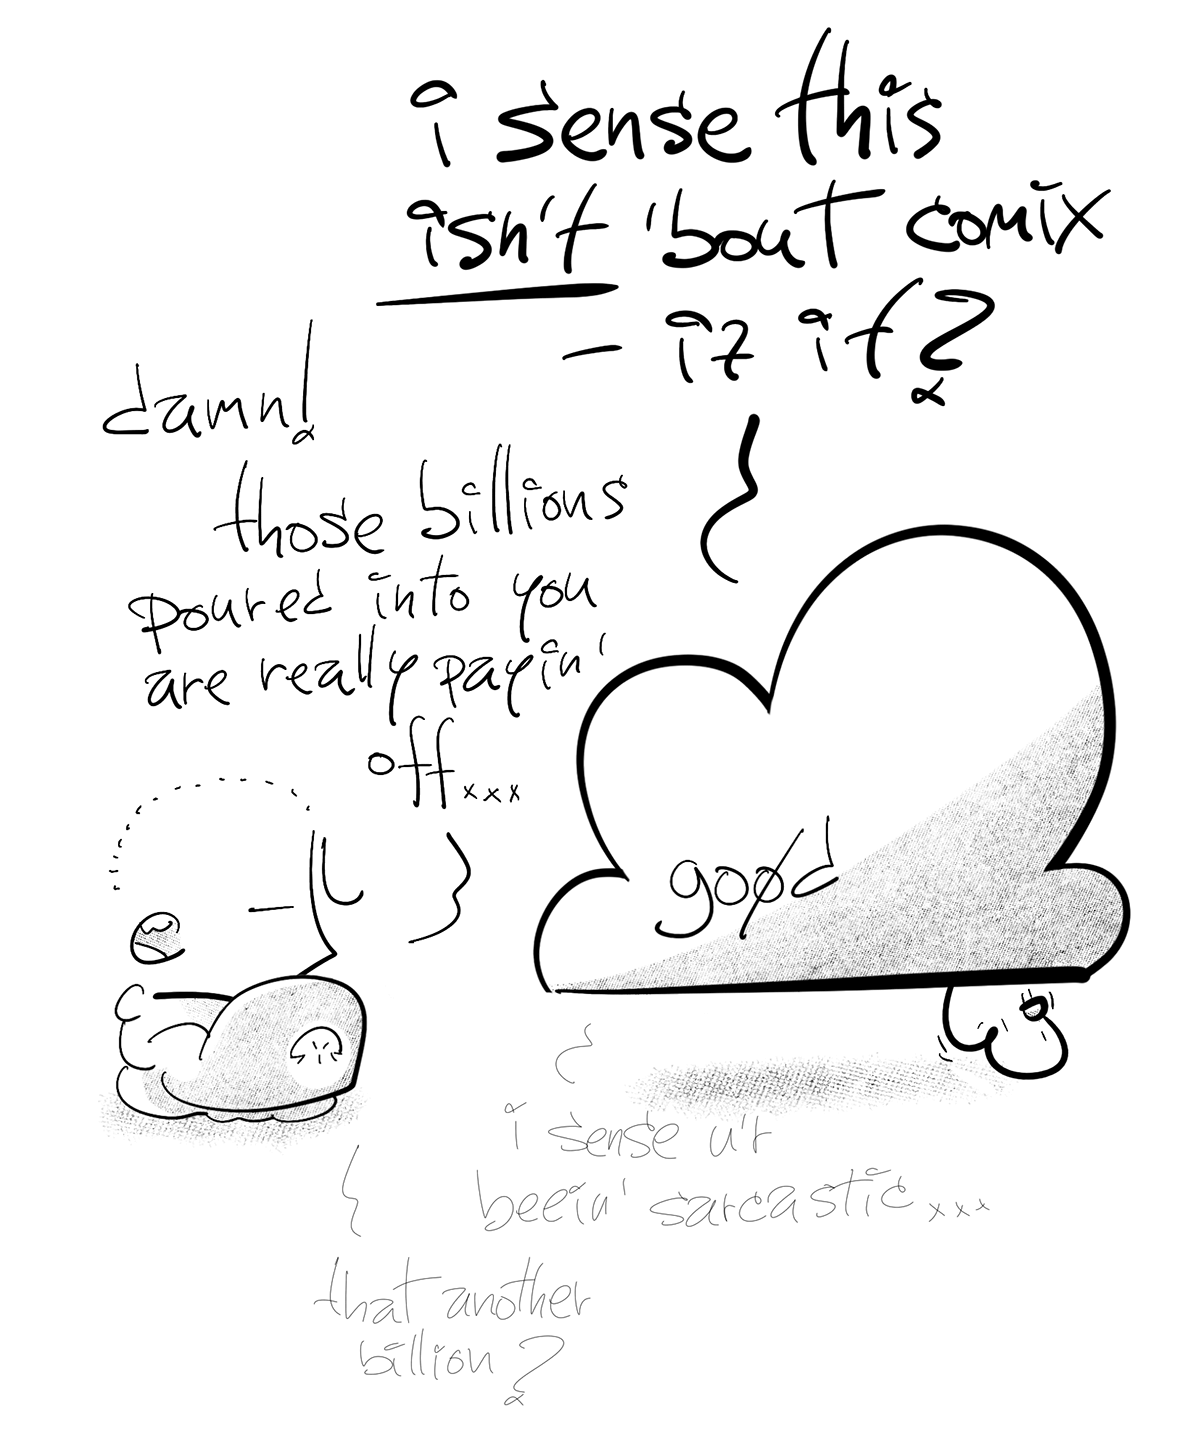 i sense this
isn't 'bout comix
– iz it?
damn!
those billions
poured into you
are really payin'
off...
goød
i sense u'r
beein' sarcastic...
that another
billion?